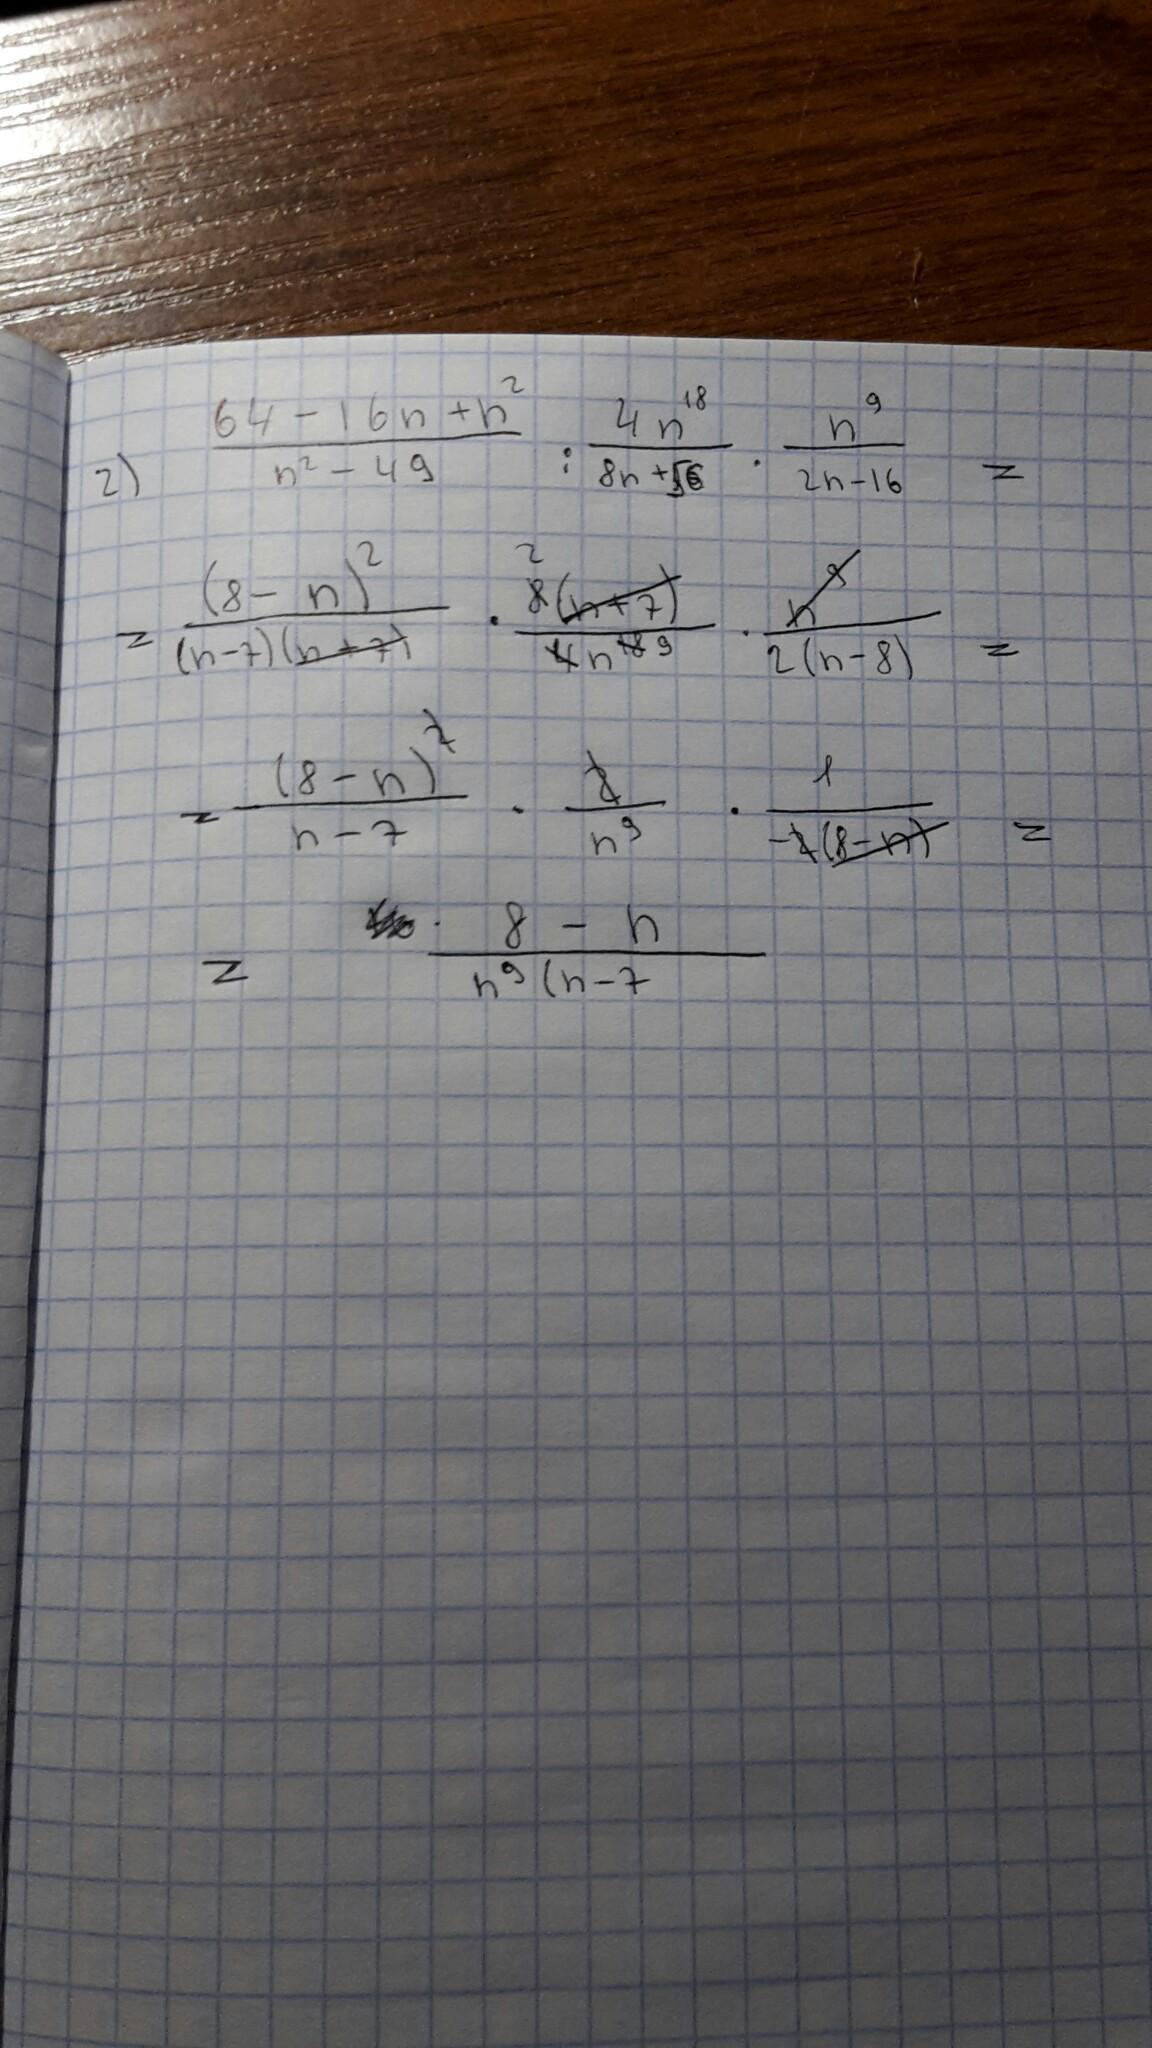 2) (64 - 16n + n²)/(n² - 49) : (4n¹⁸)/(8n + 56) · n⁹/(2n - 16) =
= (8 - n)²/((n-7)(n+7)) · 2 8(n+7)/(4n¹⁸ ⁹) · n⁹/(2(n-8)) =
= (8 - n)²/(n - 7) · 2/n⁹ · 1/(-2(8-n)) =
= (8 - n)/(n⁹(n-7